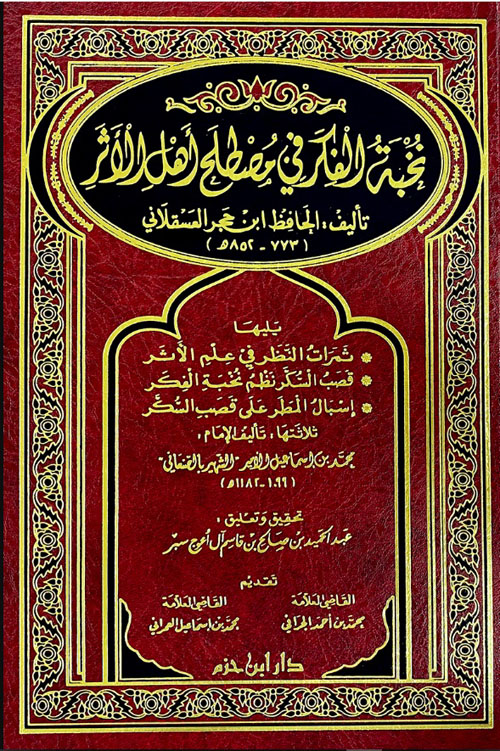 نخبة الفكر في مصطلح أهل الأثر
تأليف: الحافظ ابن حجر العسقلاني
(٧٧٣ - ٨٥٢ هـ)
يليها
* ثمرات النظر في علم الأثر
* قصب السكر نظم نخبة الفكر
* إسبال المطر على قصب السكر
ثلاثتها: تأليف الإمام:
محمد بن اسماعيل الأمير "الشهير بالصنعاني"
(١٠٩٩ - ١١٨٢ هـ)
تحقيق وتعليق:
عبد الحميد بن صالح بن قاسم آل أعوج سبر
تقديم
القاضي العلامة
محمد بن أحمد الجرافي
القاضي العلامة
محمد بن إسماعيل العمراني
دار ابن حزم